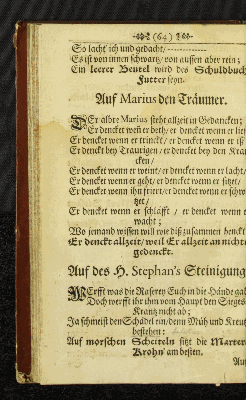 (64)
So lacht ich und gedacht/
Es ist von innen schwartz/ von aussen aber rein;
Ein leerer Beutel wird des Schuldbuch
Futter seyn.
Auf Marius den Träumer.
DEr albre Marius steht allzeit in Gedancken;
Er dencket wen er beth/ er dencket wenn er lie
Er dencket wenn er trinckt/ er dencket wenn er is
Er denckt bey Traurigen/ er dencket bey den Kra
cken/
Er dencket wenn er weint/ er dencket wenn er lacht/
Er dencket wenn er geht/ er dencket wenn er sitzet/
Er dencket wenn ihn friert/ er dencket wenn er schw
tzet/
Er dencket wenn er schlafft / er dencket wenn e
wacht;
Wo jemand wissen will wie diß zusammen henckt
Er denckt allzeit/ weil Er allzeit an nichts
gedenckt.
Auf des H. Stephan's Steinigung
WErfft was die Raserey Euch in die Hände gab
Doch werfft ihr ihm vom Haupt den Sieges
Krantz nicht ab;
Ja schmeist den Schädel ein/ denn Müh und Kreutz
bestehen:
Auf morschen Scheiteln sitzt die Marter
Krohn' am besten.
Auf